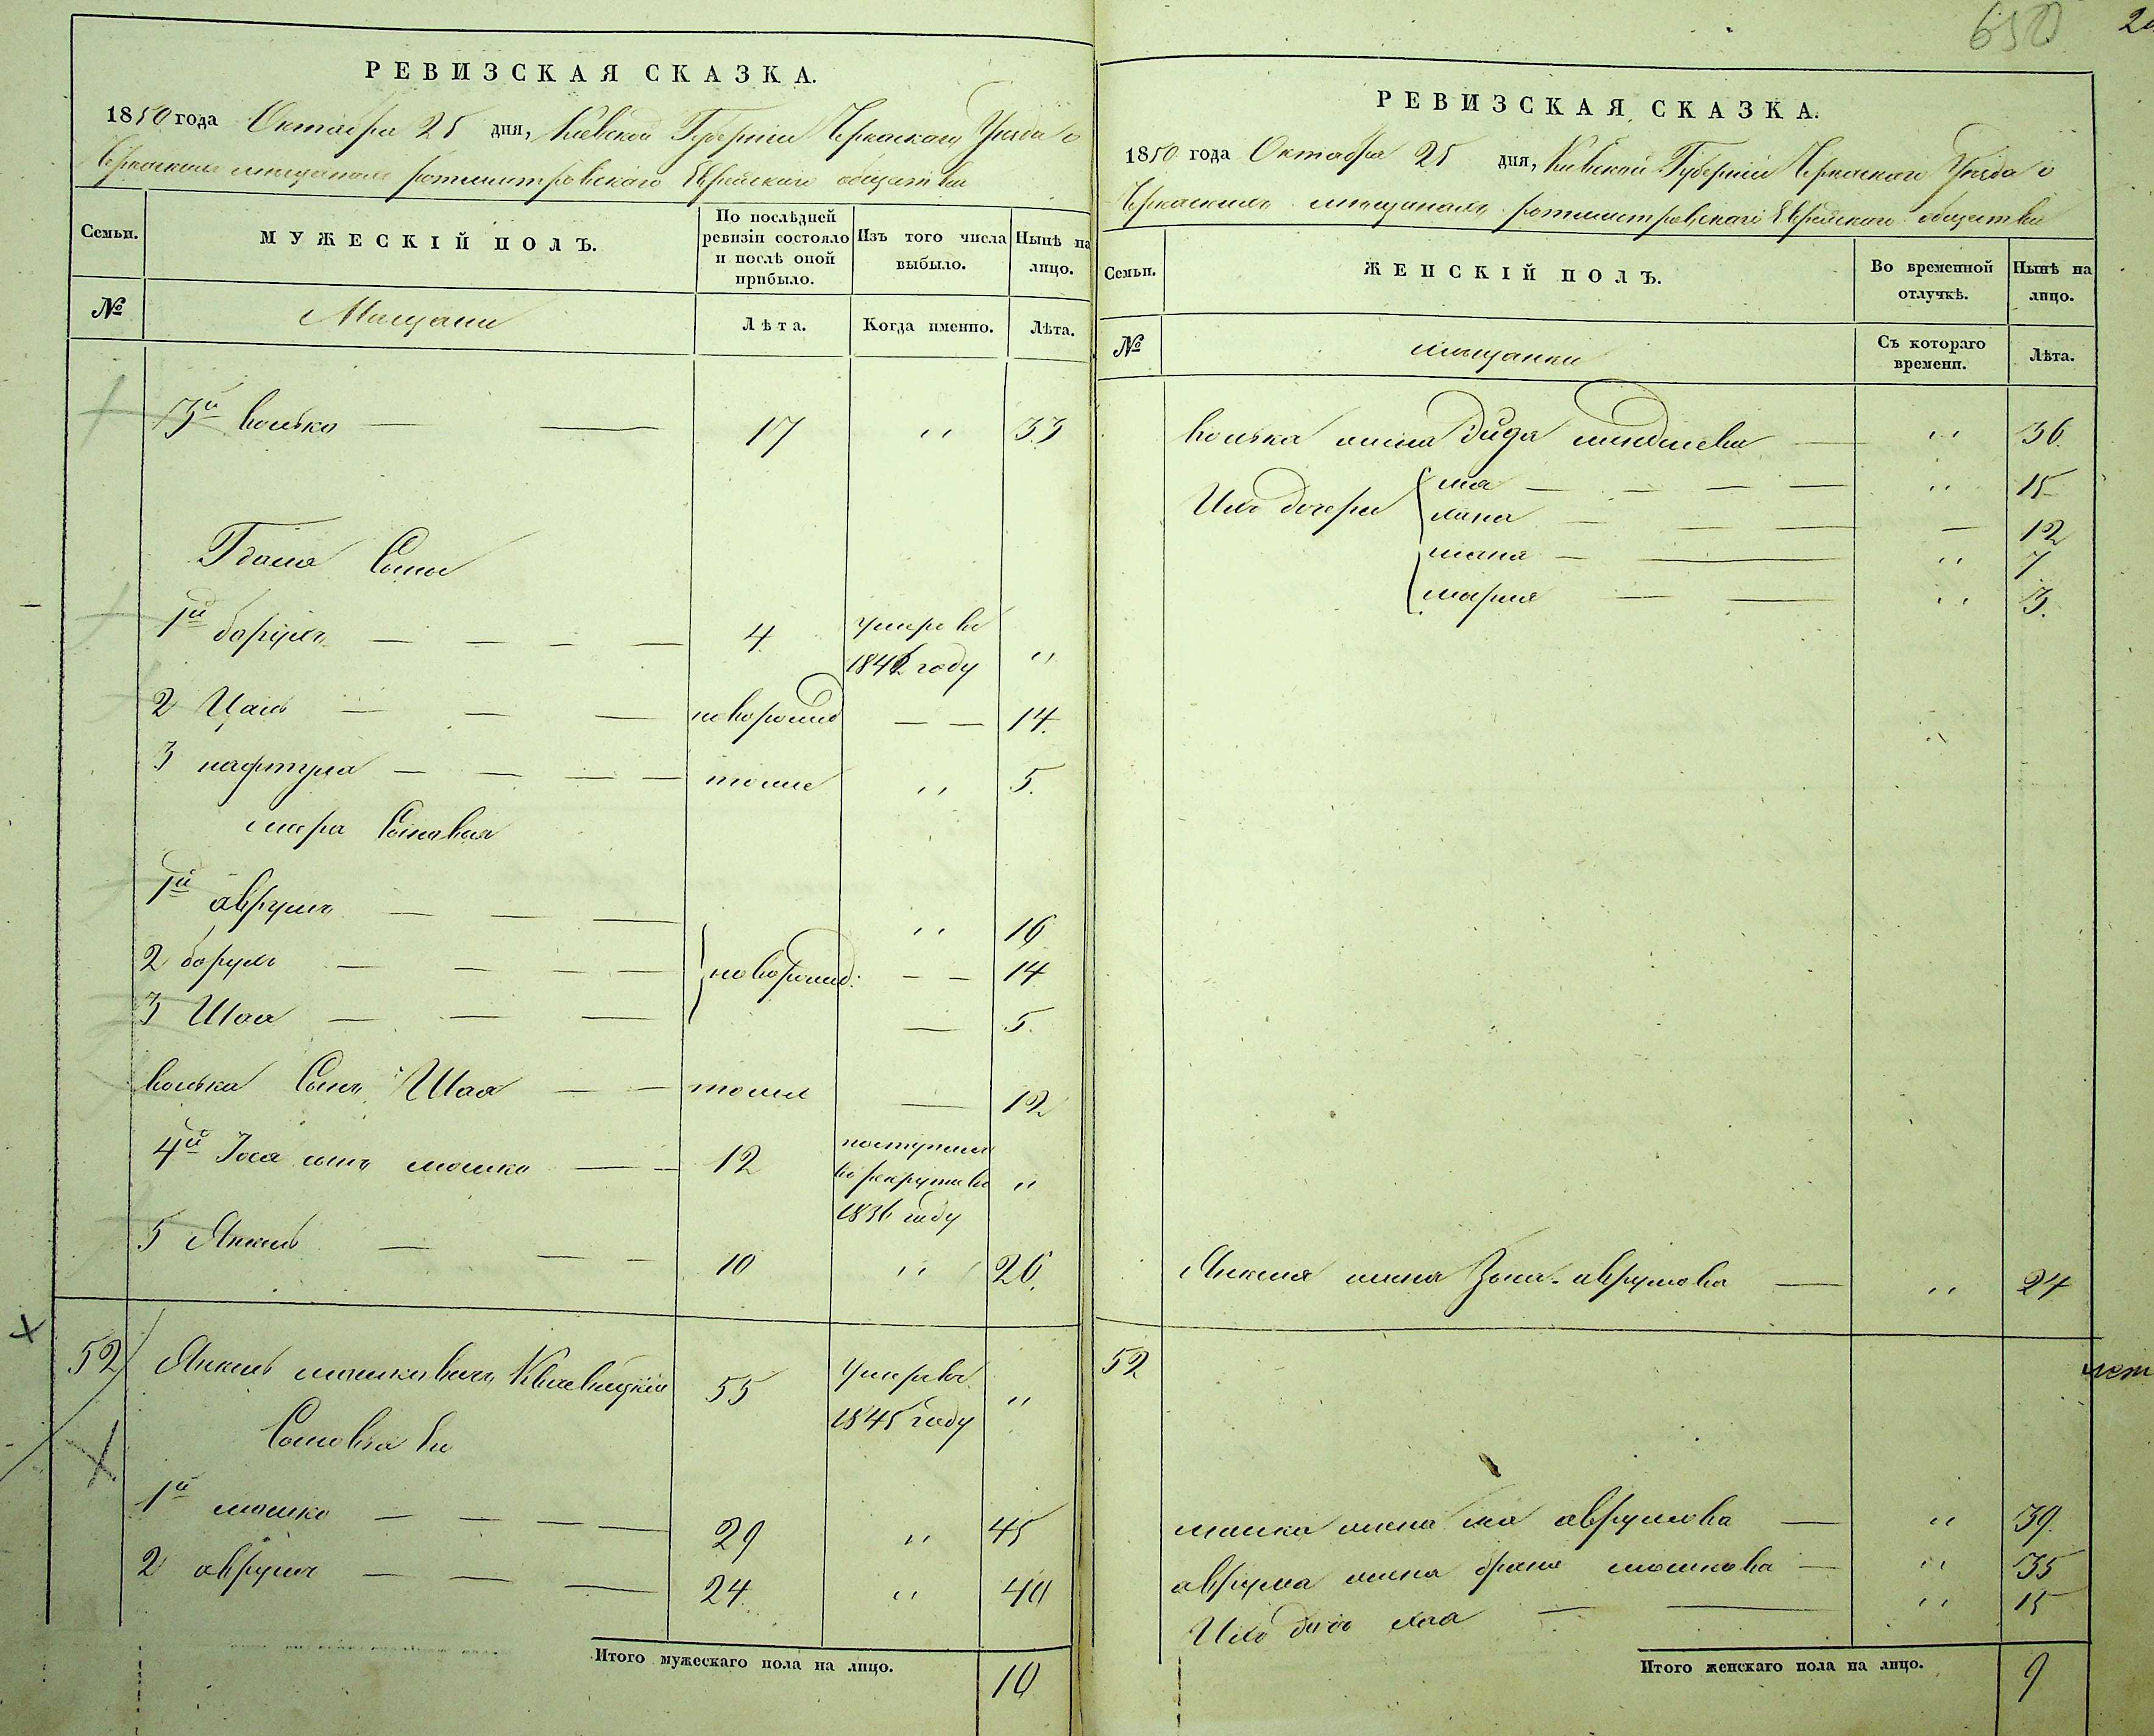 650
РЕВИЗСКАЯ СКАЗКА.
1850 года Октября 25 дня, Киевской Губернии Черкаскаго Уезда о
Черкаскихъ мещанахъ ротмистровскаго Еврейскаго общества
Семьи.
МУЖЕСКІЙ ПОЛЪ.
По послѣдней ревизіи состояло и послѣ оной прибыло.
Изъ того числа выбыло.
Нынѣ на лицо.
№
Мещане
Лѣта.
Когда именно.
Лѣта.
3й волько — — 17 " 33
Сыны
1й борухъ — — — — 4 умре въ
184 году "
2 Ицель — — — новорожд — — 14
3 нафтула — — — — тоже " 5.
Сыновья
1й аврумъ — — — " 16
2 борухъ — — — — новорожд: — — 14
3 Шая — — — — 5.
волька Сынъ Шая — — тоже — 12
4й Іося сынъ мошко — — 12 поступилъ
въ рекруты въ "
1836 году
5 Янкель — — — 10 " 26.
52 Янкель мошковичъ 55 умре въ
1845 году "
Сыновья Ево
1й мошко — — — — 29 " 45
2 аврумъ — — — 24 " 40
Итого мужескаго пола на лицо.
10
РЕВИЗСКАЯ СКАЗКА.
1850 года Октября 25 дня, Киевской Губерніи Черкаскаго Уезда о
Черкаскихъ мещанахъ ротмистровскаго Еврейскаго общества
Семьи.
ЖЕНСКІЙ ПОЛЪ.
Во временной отлучкѣ.
Нынѣ на лицо.
№
мещанки
Съ котораго времени.
Лѣта.
волька жена — " 36.
Ихъ дочери — — — — " 15
— — — — 12
— — " 7
мария — — " 3.
Янкеля жена аврумова — " 24
52
мошка жена аврумова — " 39.
аврума жена брана мошкова — " 35
Ихъ дочь хая — — " 15
Итого женскаго пола на лицо.
9